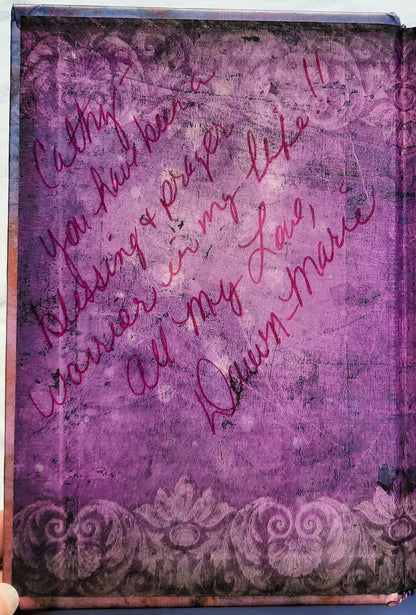 Cathy –
You have been a
blessing & prayer
warrior in my life!!
All My Love,
Dawn-Marie